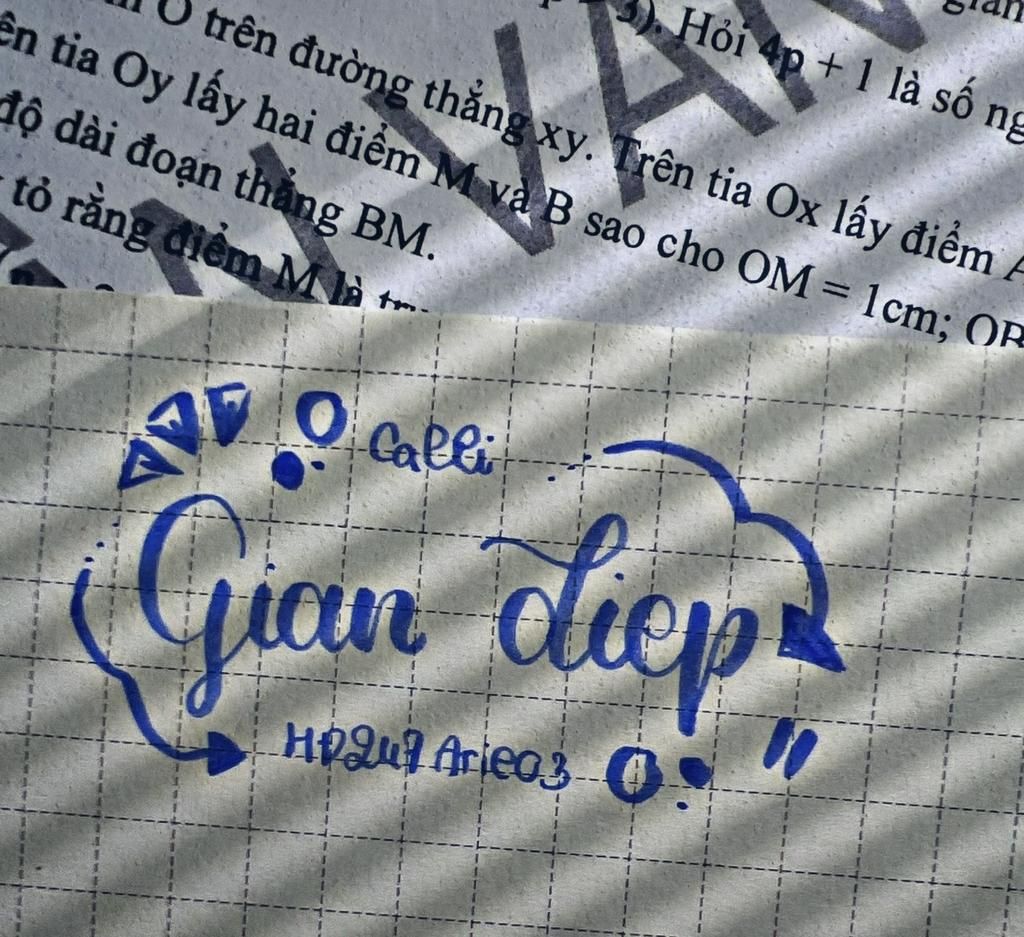 O trên đường thẳng xy. Trên tia Ox lấy điểm A
3). Hỏi 4p + 1 là số
ên tia Oy lấy hai điểm M và B sao cho OM = 1cm; OB
độ dài đoạn thẳng BM.
tỏ rằng điểm M là
VAN
Calli
Gian diep
HD247 Arieo3